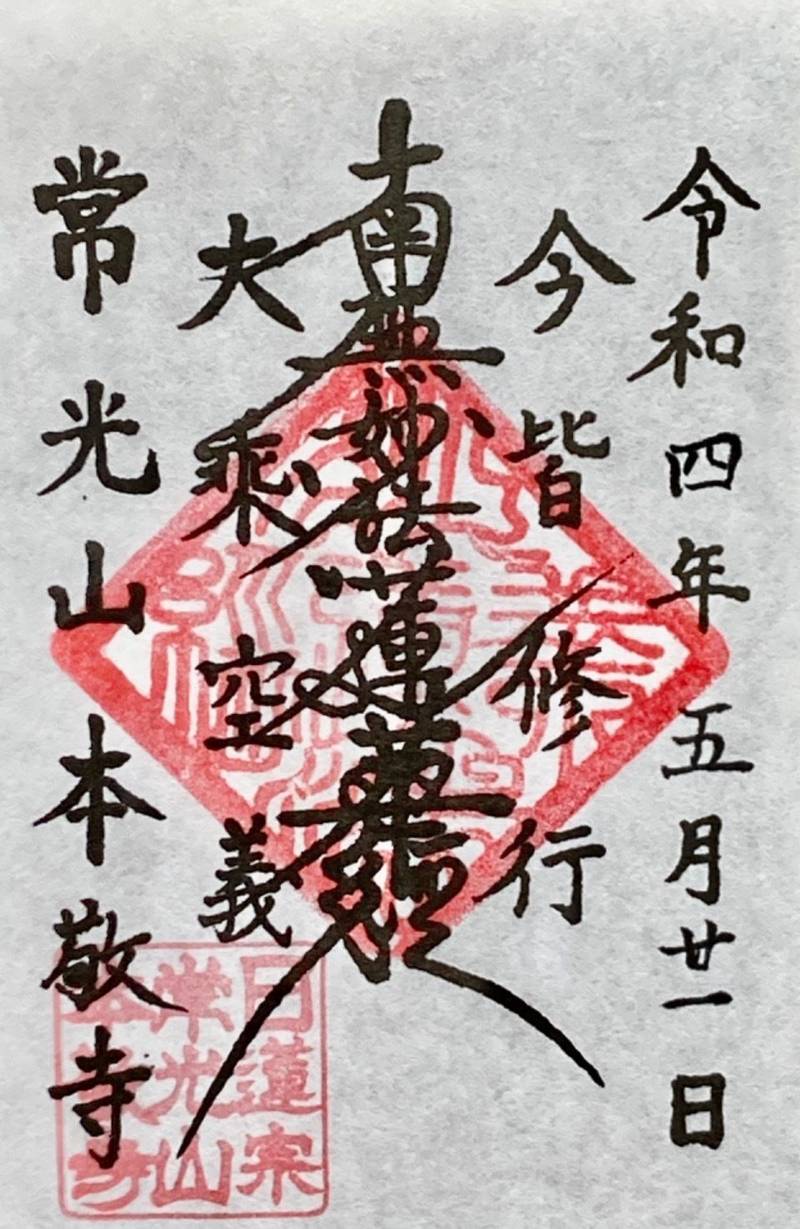 令和四年五月廿一日
今皆修行
南無妙法蓮華経
大乗空義
常光山本敬寺
日蓮宗
常光山
本敬寺